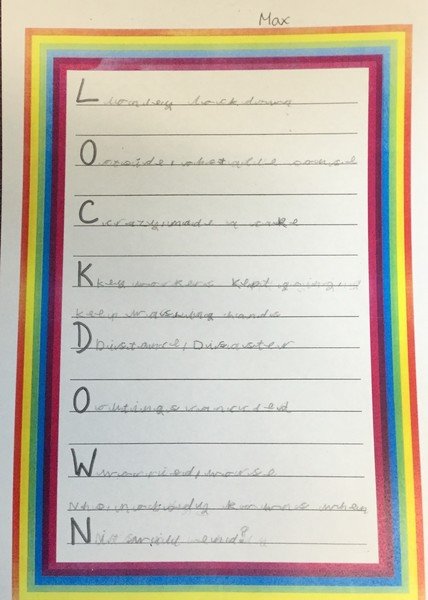 Max
L lonely lockdown
O outside, obstacle course
C crazy, made a cake
K key workers kept going
keep washing hands
D Distance, Disaster
O outings
W worried, worse
N nobody knows when
N will end?